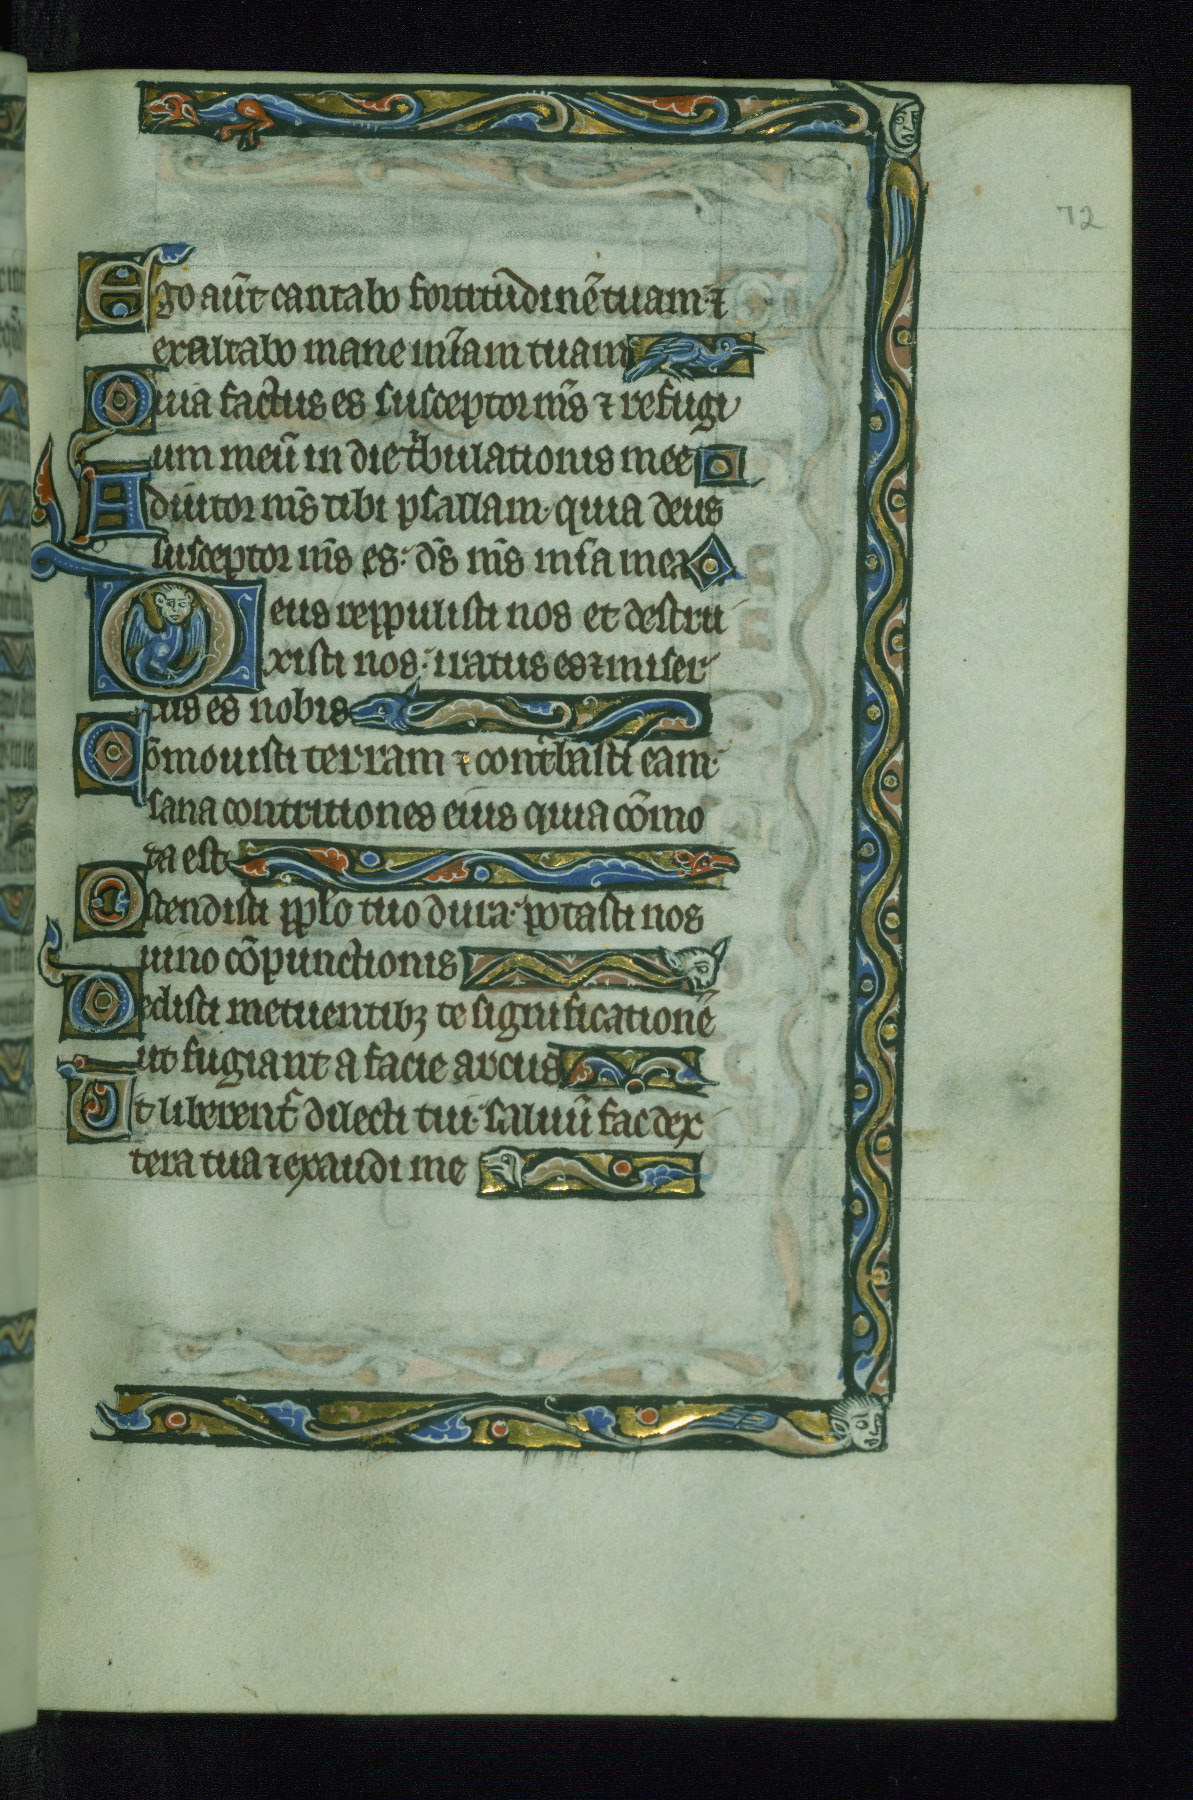 72
Ego aut̄ cantabo fortitudinē tuam· ⁊
exaltabo mane mīam tuam
Quia factus es susceptor mſ̄ ⁊ refugi
um meū in die tͥbulationis mee
Adiutor mſ̄ tibi psallam· quia deus
susceptor mſ̄ es· dſ̄ mſ̄ mīa mea
Deus reppulisti nos et destru
xisti nos· iratus es ⁊ miser
tus es nobis
Cōmouisti terram ⁊ contͥbasti eam·
sana contritiones eius quia cōmo
ta est
Ostendisti pplo tuo dura· potasti nos
uino cōpunctionis
Dedisti metuentibꝫ te significationē
ut fugiant a facie arcus
Ut liberent᷑ dilecti tui· saluū fac dex
tera tua ⁊ exaudi me